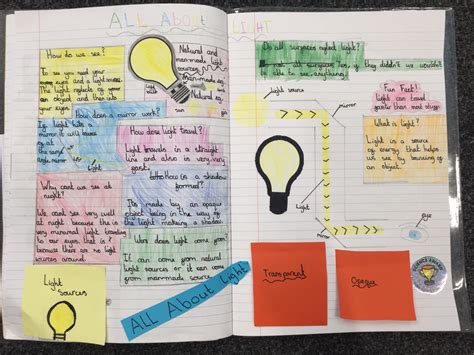 ALL About LIGHT
How do we see?
To see you need your
eyes and a light source.
The light reflects of
an object and then into
your eyes.
Natural and
man-made light
sources
Natural eg.
How does a mirror work?
If light hits a
mirror it will
at
the same
angle.
How does light travel?
Light travels in a straight
line and also is very very
fast.
Why cant we see at
night?
We cant see very well
at night because there is
very minimal light traveling
to our eyes, that is
because there are no light
sources around.
How is a shadow
formed?
Its made by an opaque
object being in the way of
the light making a shadow.
Were does light come from?
It can come from natural
light sources or it can come
from man-made source.
Light
Sources
ALL About Light
Do all surfaces reflect light?
all surfaces do, if they didn't we wouldn't
be able to see anything.
light source
mirror
Fun Fact!
Light can travel
faster than
What is light?
Light is a source
of energy that helps
us see by bouncing of
an object.
light
mirror
eye
Transparent
Opaque